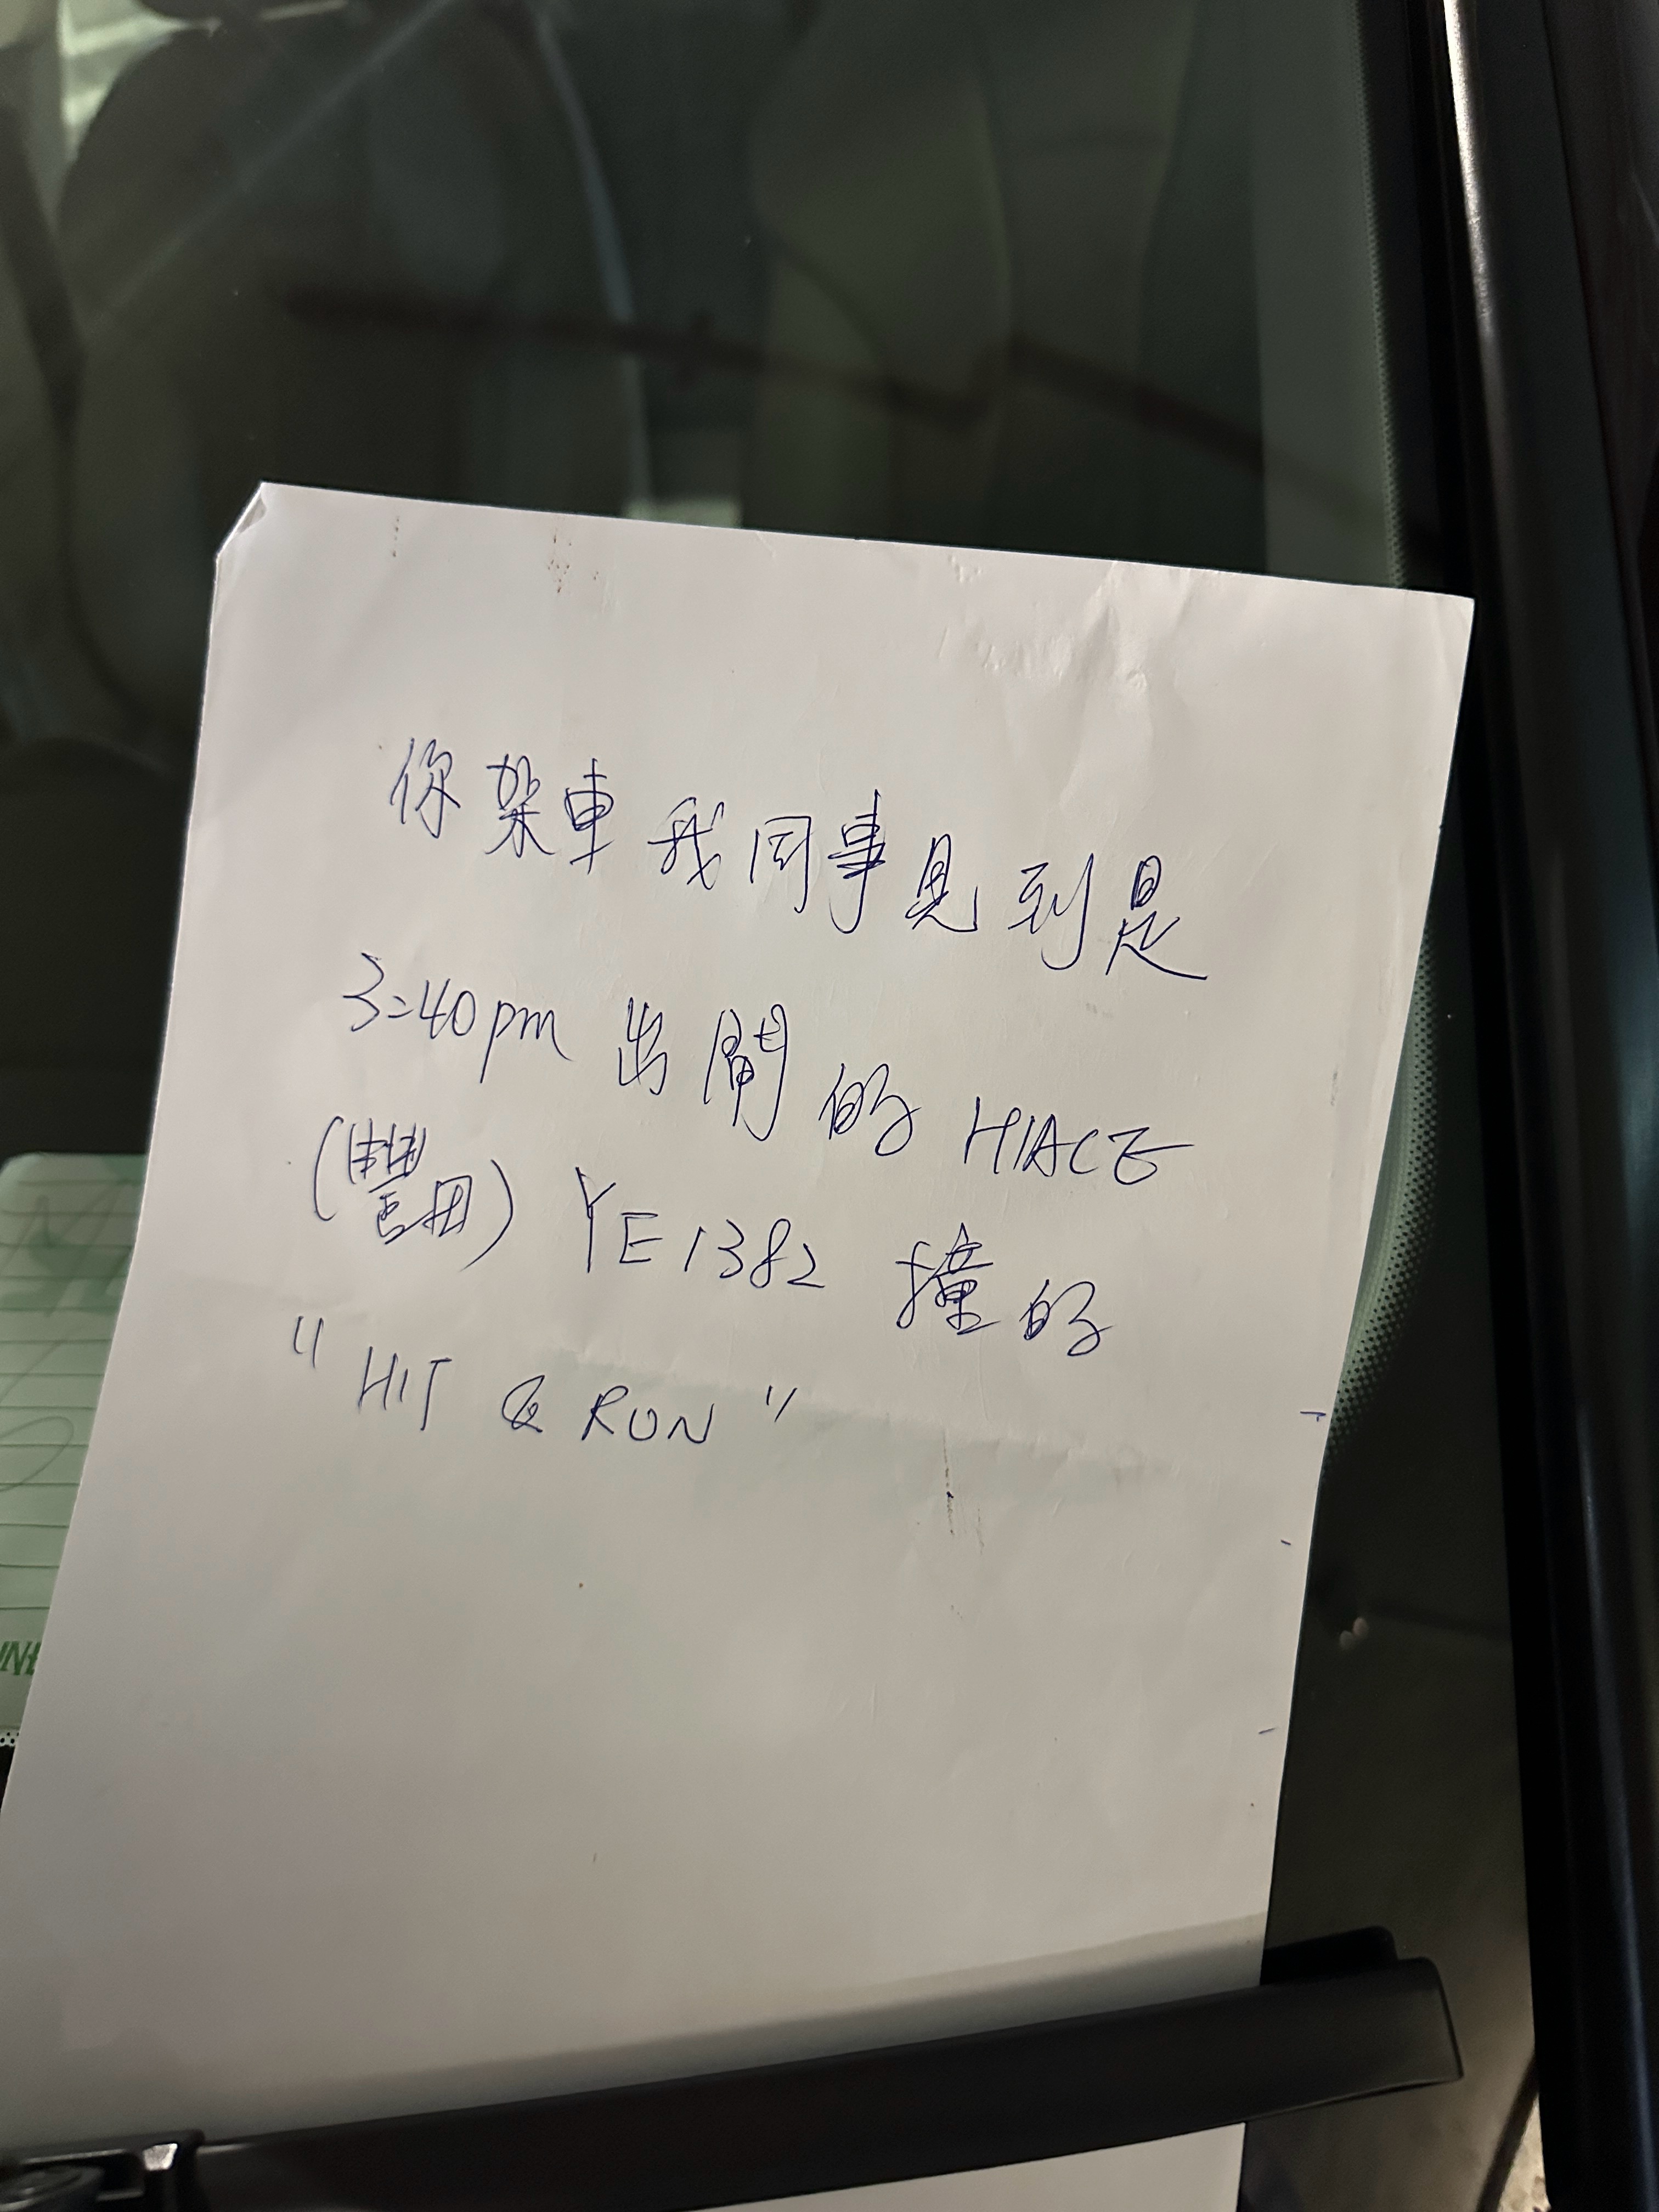 你架車我同事見到是
3:40pm 出閘的 HIACE
(豐田) YE1382 撞的
"HIT & RUN"